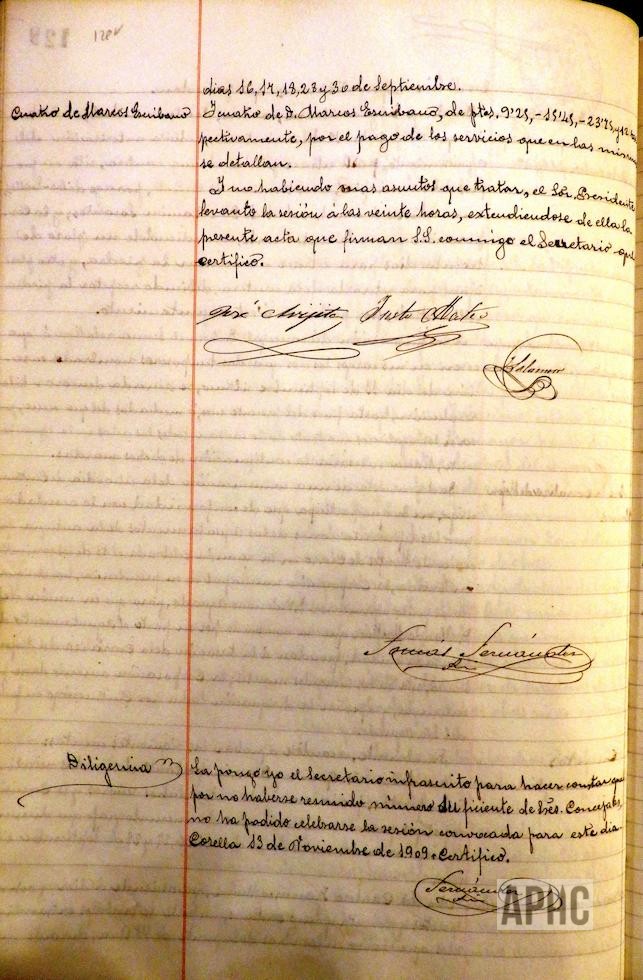 128v
dias 16, 17, 18, 23 y 30 de Septiembre.
Cuatro de Marcos Escribano
Y cuatro de D. Marcos Escribano, de ptas. 9'25, - 15'45, - 23'75, y 12
pectivamente, por el pago de los servicios que en las mismas
se detallan.
Y no habiendo mas asuntos que tratar, el Sor. Presidente
levantó la sesión á las veinte horas, extendiendose de ella la
presente acta que firman S.S. conmigo el Secretario que
certifico.
José Justo Mateo
Salomon
Tomás Fernández
Diligencia
La pongo yo el Secretario infrascrito para hacer constar que
por no haberse reunido número suficiente de Sres. Concejales,
no ha podido celebrarse la sesión convocada para este dia
Corella 13 de Noviembre de 1909. Certifico.
Fernández
APHC